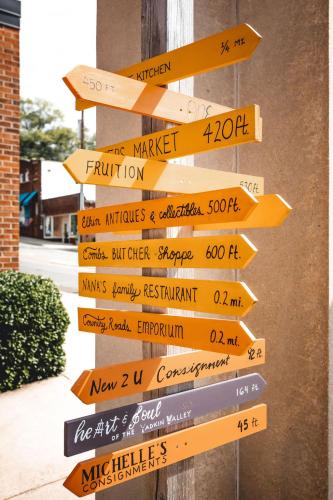 KITCHEN 1/4 MI.
450 FT.
MARKET 420ft.
FRUITION 530 ft.
Elkin ANTIQUES & collectibles 500ft.
Combs BUTCHER Shoppe 600 ft.
NANA'S family RESTAURANT 0.2 mi.
Country Roads EMPORIUM 0.2mi.
New 2 U Consignment 92 ft
heArt & Soul 164 FT.
OF THE YADKIN VALLEY
MICHELLE'S 45 ft.
CONSIGNMENTS